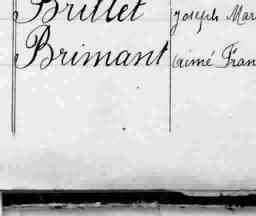 Brillet Joseph Mar
Brimant Aimé Fran